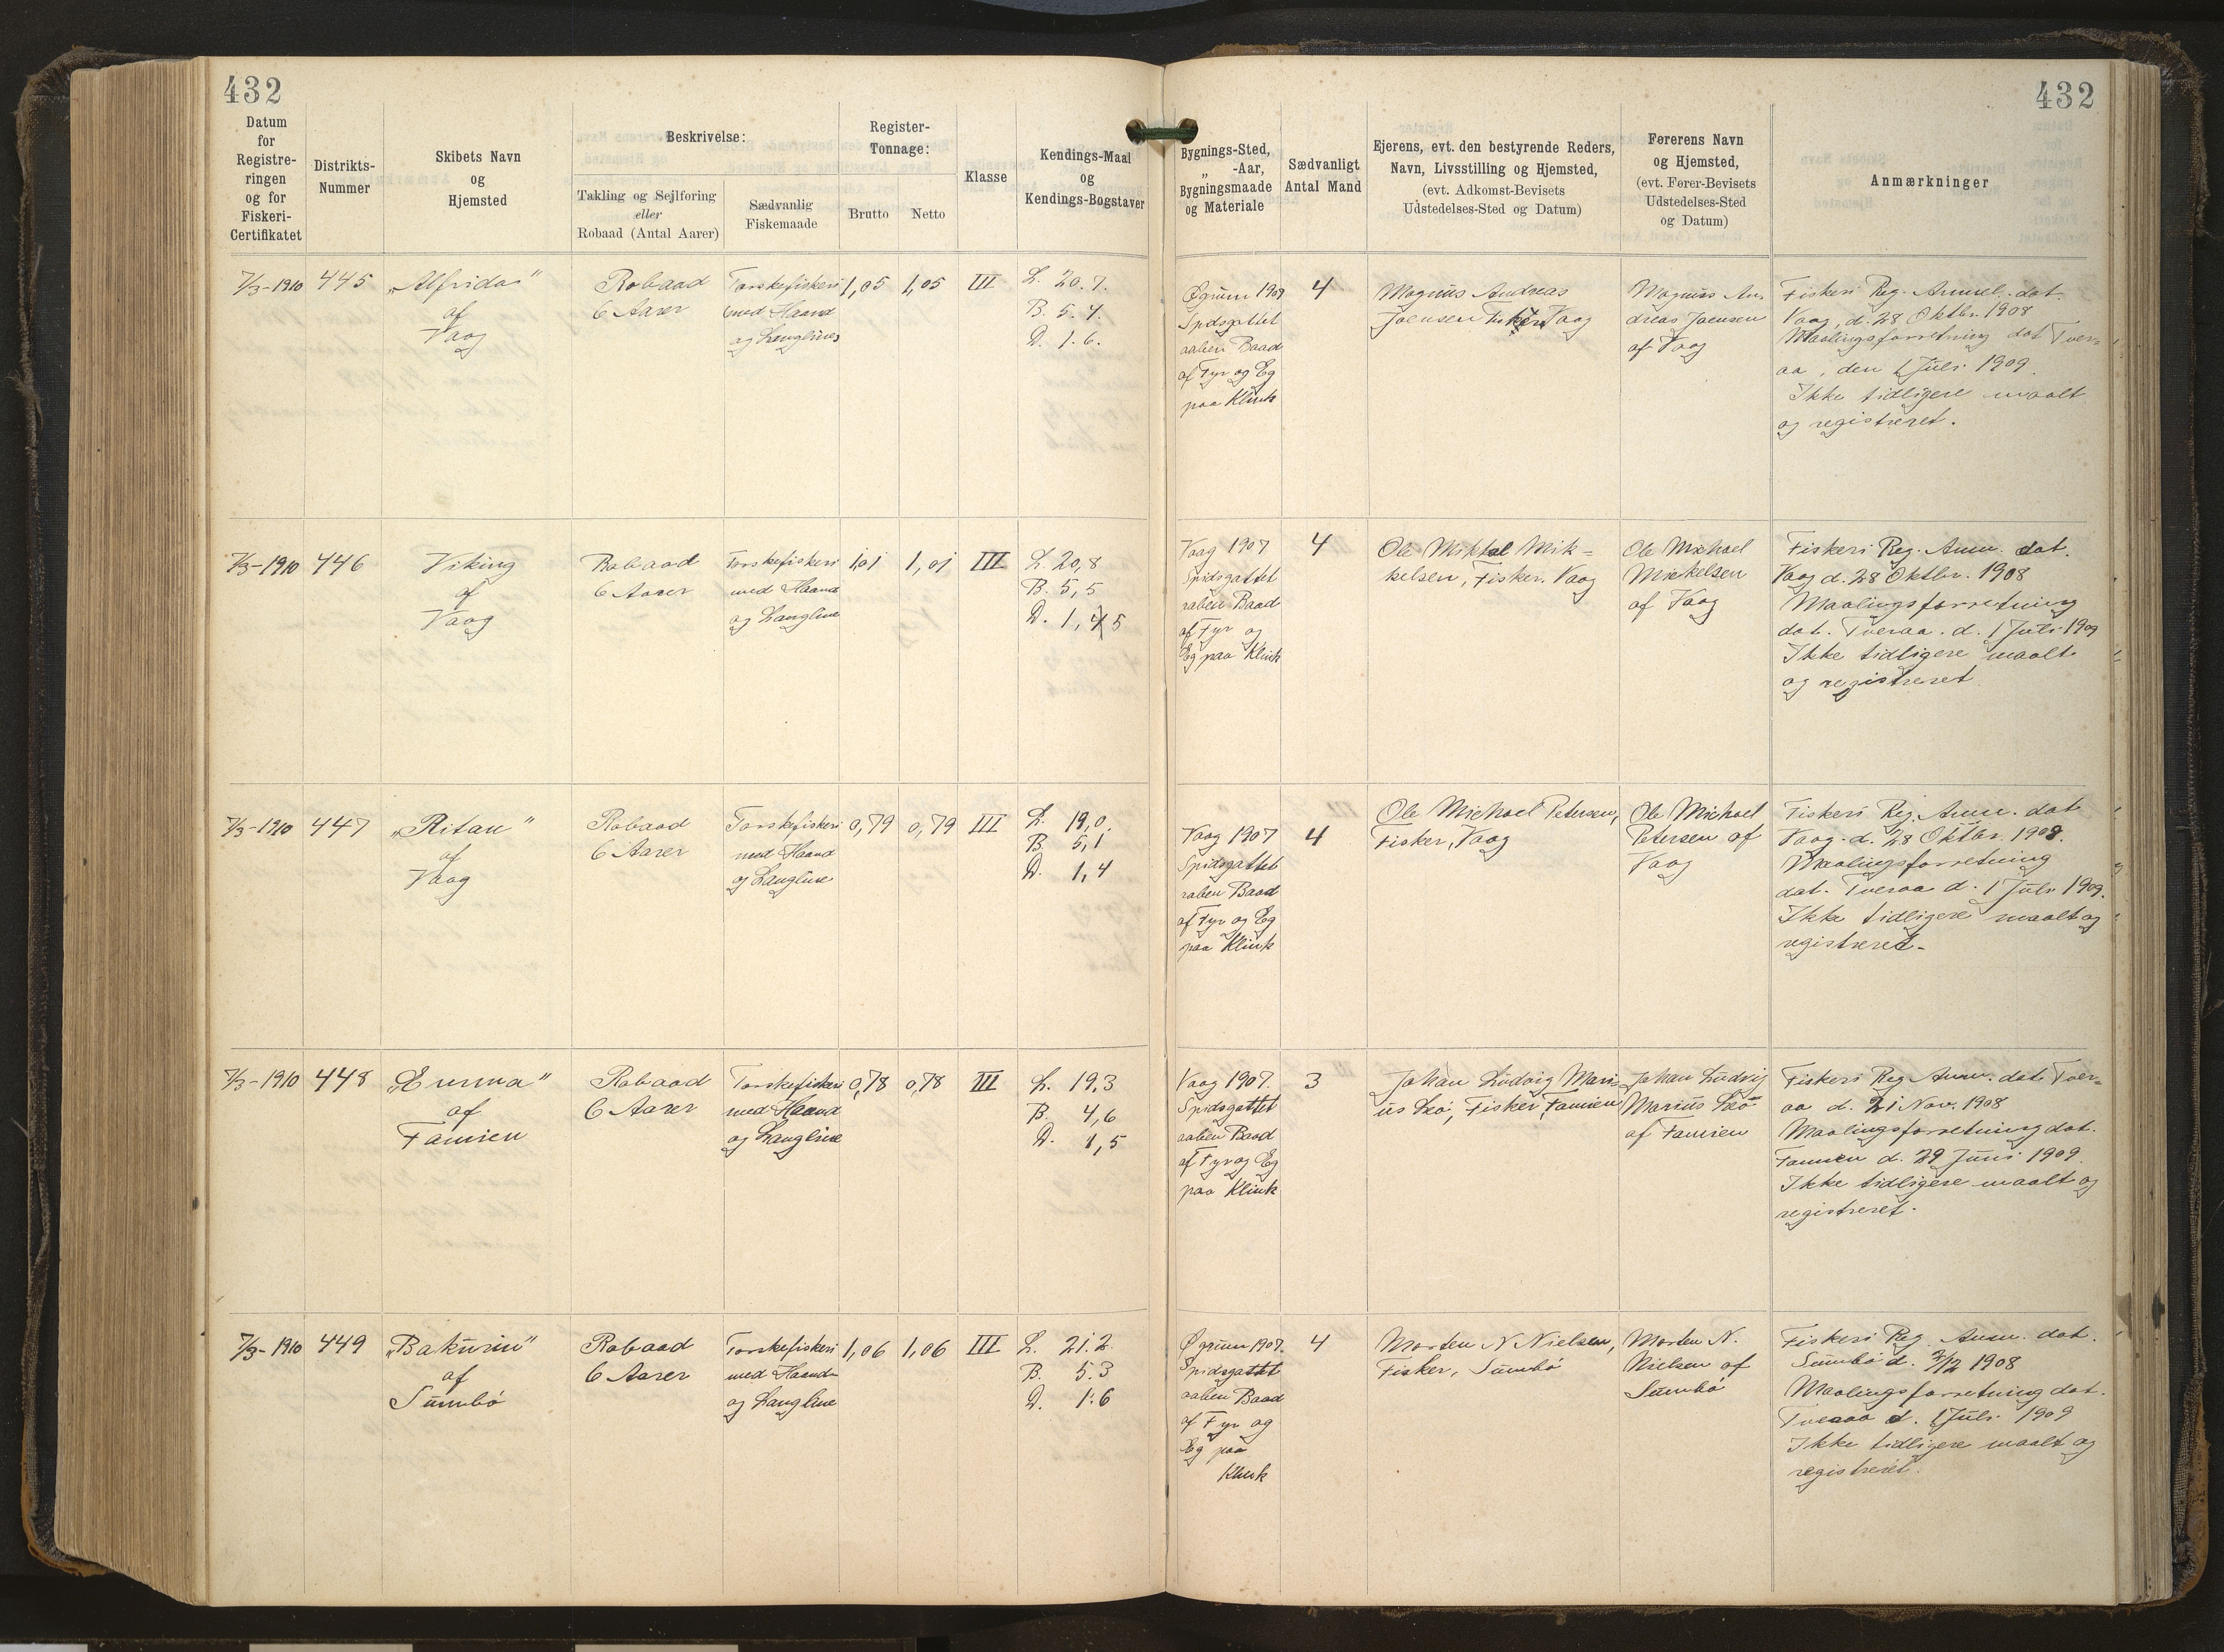 432
432
Datum
for
Registre-
ringen
og for
Fiskeri-
Certifikatet
Distrikts-
Nummer
Skibets Navn
og
Hjemsted
Beskrivelse:
Takling og Sejlføring
eller
Robaad (Antal Aarer)
Sædvanlig
Fiskemaade
Register-
Tonnage:
Brutto
Netto
Klasse
Kendings-Maal
og
Kendings-Bogstaver
Bygnings-Sted,
„ -Aar,
Bygningsmaade
og Materiale
Sædvanligt
Antal Mand
Ejerens, evt. den bestyrende Reders,
Navn, Livsstilling og Hjemsted,
(evt. Adkomst-Bevisets
Udstedelses-Sted og Datum)
Førerens Navn
og Hjemsted,
(evt. Fører-Bevisets
Udstedelses-Sted
og Datum)
Anmærkninger
7/3-1910
445
„Alfrida"
af
Vaag
Robaad
6 Aarer
Torskefiskeri
med Haand
og Langline
1,05
1,05
III
L. 20.7.
B. 5.4.
D. 1.6.
Øgrum 1907
Spidsgattet
aaben Baad
af Fyr og Eg
paa Klink
4
Magnus Andreas
Joensen Fisker, Vaag
Magnus An-
dreas Joensen
af Vaag
Fiskeri Reg. Anmel. dat.
Vaag, d. 28 Oktbr. 1908
Maalingsforretning dat Tver-
aa, den 1 Juli 1909.
Ikke tidligere maalt
og registreret.
7/3-1910
446
Viking
af
Vaag
Robaad
6 Aarer
Torskefiskeri
med Haand
og Langline
1,01
1,01
III
L. 20,8
B. 5,5
D. 1,5
Vaag 1907
Spidsgattet
aaben Baad
af Fyr og
Eg paa Klink
4
Ole Mikkal Mik-
kelsen, Fisker. Vaag
Ole Michael
Mickelsen
af Vaag
Fiskeri Reg. Anm. dat.
Vaag d. 28 Oktbr. 1908
Maalingsforretning
dat. Tveraa. d. 1 Juli 1909
Ikke tidligere maalt
og registreret
7/3-1910
447
„Ritan"
af
Vaag
Robaad
6 Aarer
Torskefiskeri
med Haand
og Langline
0,79
0,79
III
L. 19,0.
B. 5,1
D. 1,4
Vaag 1907
Spidsgattet
aaben Baad
af Fyr og Eg
paa Klink
4
Ole Michael Petersen,
Fisker, Vaag
Ole Michael
Petersen af
Vaag
Fiskeri Reg. Anm. dat
Vaag. d. 28 Oktbr. 1908.
Maalingsforretning
dat. Tveraa d. 1 Juli 1909.
Ikke tidligere maalt og
registreret.
7/3-1910
448
„Emma"
af
Famien
Robaad
6 Aarer
Torskefiskeri
med Haand
og Langline
0,78
0,78
III
L. 19,3
B. 4,6
D. 1,5
Vaag 1907.
Spidsgattet
aaben Baad
af Fyr og Eg
paa Klink
3
Johan Ludvig Mari-
us Leo, Fisker, Famien
Johan Ludvig
Marius Leo
af Famien
Fiskeri Reg Anm. dat. Tver-
aa d. 21 Nov. 1908
Maalingsforretning dat.
Famien d. 29 Juni 1909.
Ikke tidligere maalt og
registreret.
7/3-1910
449
„Bakurin"
af
Sumbö
Robaad
6 Aarer
Torskefiskeri
med Haand
og Langline
1,06
1,06
III
L. 21.2
B. 5.3
D. 1.6
Øgrum 1907.
Spidsgattet
aaben Baad
af Fyr og
Eg paa
Klink
4
Morten N Nielsen,
Fisker, Sumbö
Morten N.
Nielsen af
Sumbö
Fiskeri Reg. Anm. dat.
Sumbö d. 1908
Maalingsforretning dat.
Tveraa d. 1 Juli 1909
Ikke tidligere maalt og
registreret.